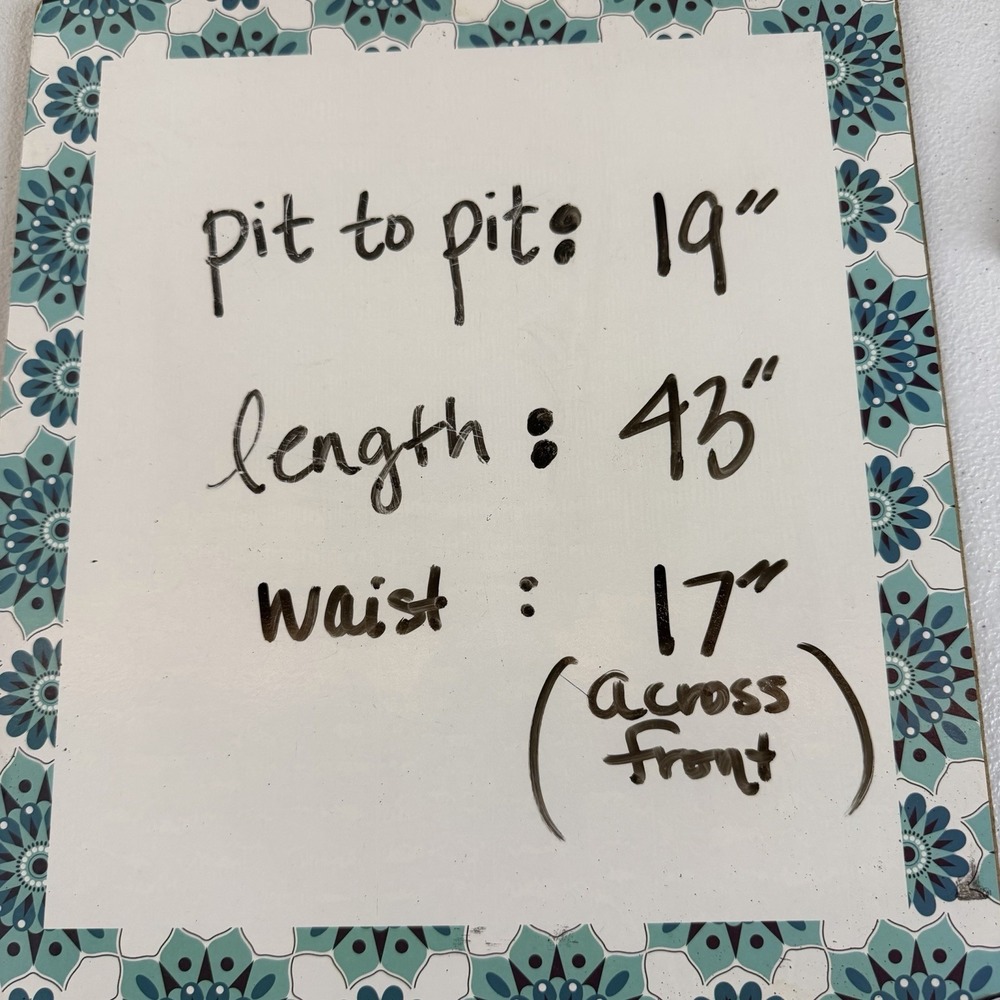 pit to pit: 19"
length: 43"
waist: 17"
(across
front)